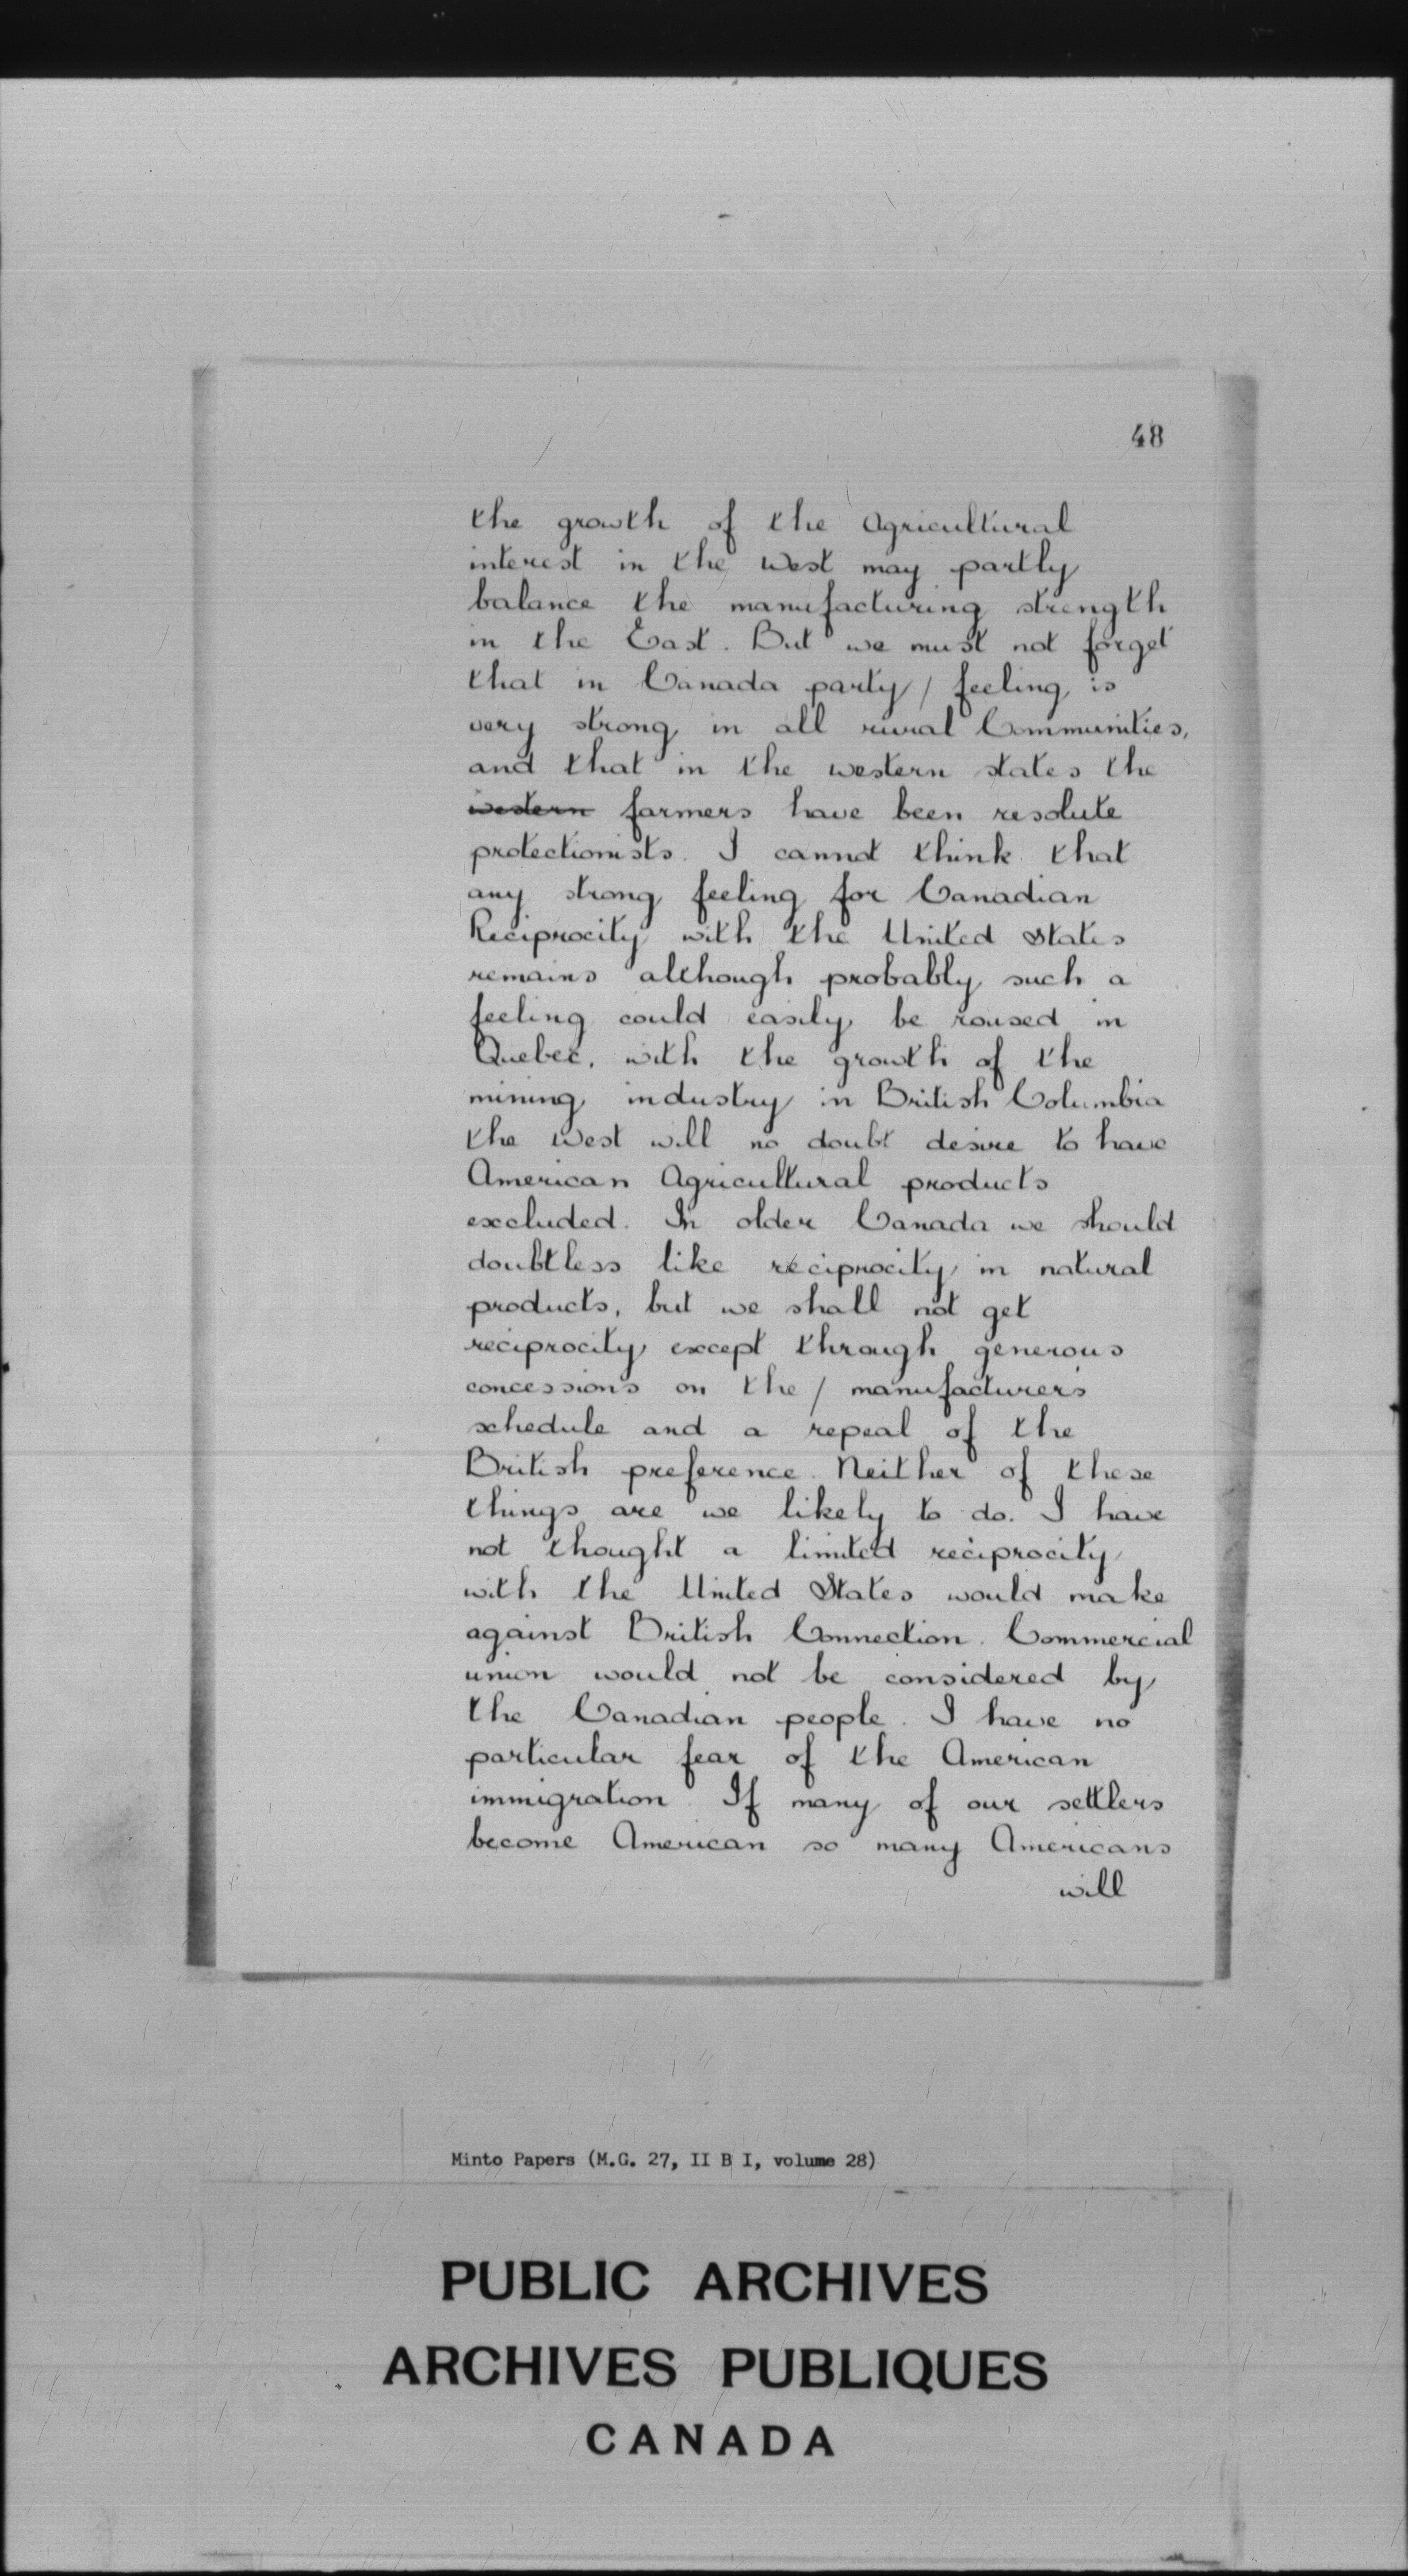 48
the growth of the Agricultural
interest in the West may partly
balance the manufacturing strength
in the East. But we must not forget
that in Canada party / feeling is
very strong in all rural Communities,
and that in the western states the
western farmers have been resolute
protectionists. I cannot think that
any strong feeling for Canadian
Reciprocity with the United States
remains although probably such a
feeling could easily be roused in
Quebec, with the growth of the
mining industry in British Columbia
the West will no doubt desire to have
American Agricultural products
excluded. In older Canada we should
doubtless like reciprocity in natural
products, but we shall not get
reciprocity except through generous
concessions on the / manufacturers
schedule and a repeal of the
British preference. Neither of these
things are we likely to do. I have
not thought a limited reciprocity
with the United States would make
against British Connection. Commercial
union would not be considered by
the Canadian people. I have no
particular fear of the American
immigration. If many of our settlers
become American so many Americans
will
Minto Papers (M.G. 27, II B I, volume 28)
PUBLIC ARCHIVES
ARCHIVES PUBLIQUES
CANADA